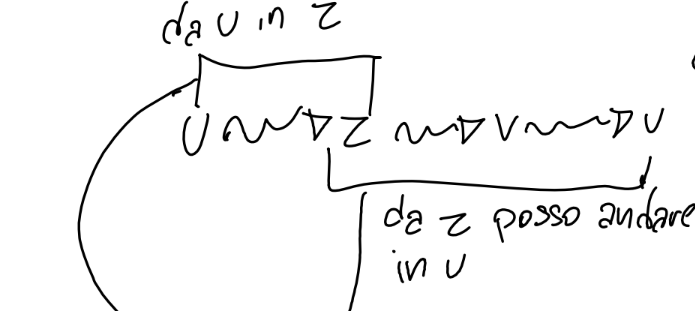 da U in Z
U ⇝ Z ⇝ V ⇝ U
da z posso andare
in U